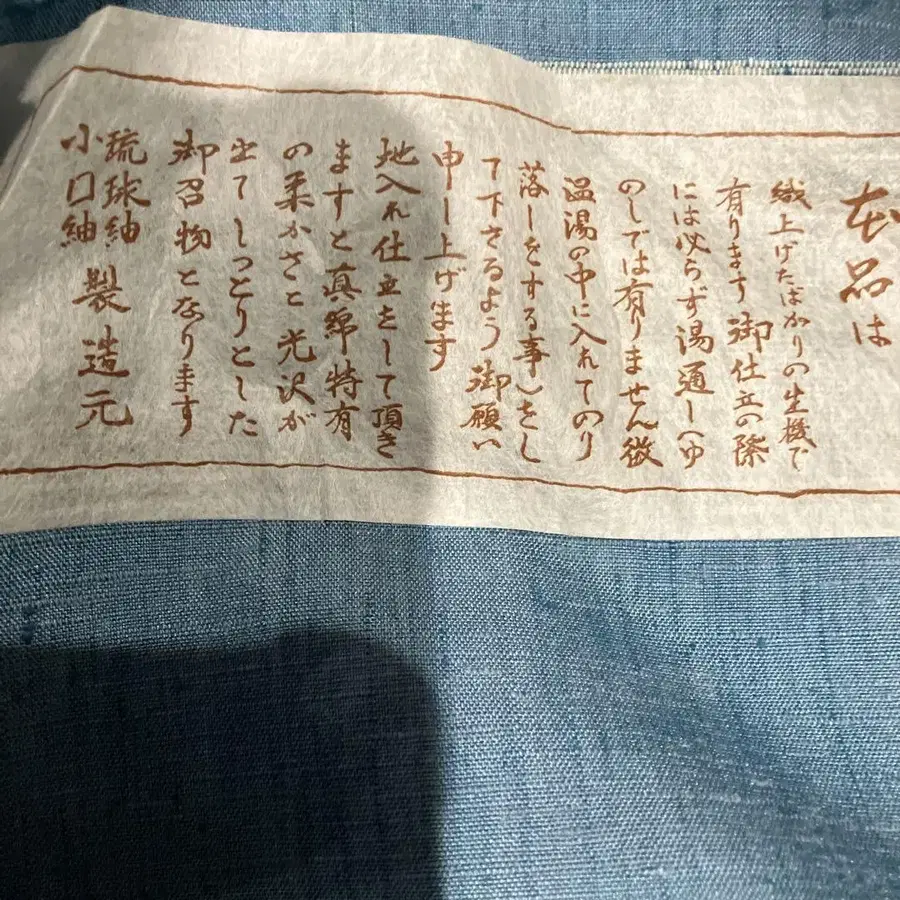 本品は
織上げたばかりの生機で
有ります御仕立の際
には必らず湯通し(ゆ
のしでは有りません微
温湯の中に入れてのり
落しをする事)をし
て下さるよう御願い
申し上げます
地入れ仕立をして頂き
ますと真綿特有
の柔かさと光沢が
出てしっとりとした
御召物となります
琉球紬
小口紬 製造元